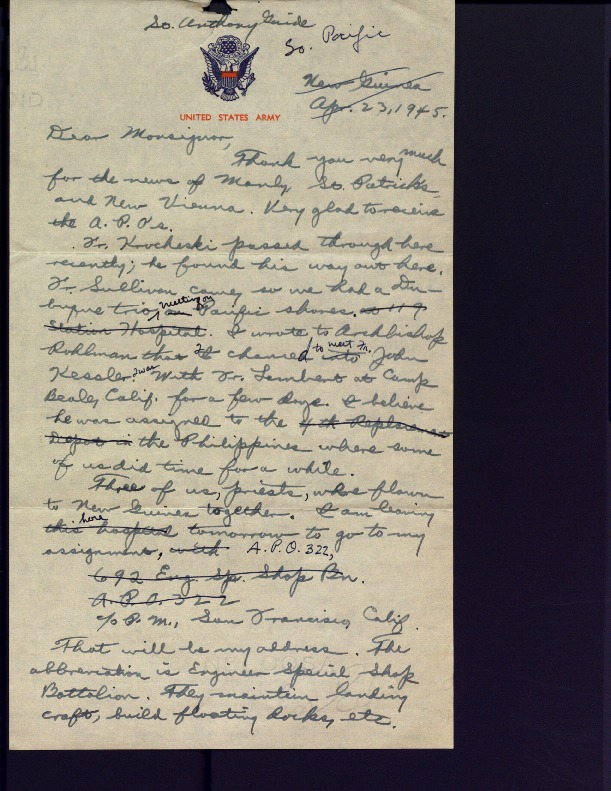 St. Anthony Guide
So. Pacific
New Guinea
Apr. 23, 1945.
UNITED STATES ARMY
Dear Monsignor,
Thank you very much
for the news of Manly, St. Patrick's,
and New Vienna. Very glad to receive
the A.P.O's.
Fr. Krocheski passed through here
recently; he found his way out here.
Fr. Sullivan came, so we had a Du-
buque trio, meeting on Pacific shores. at 119
Station Hospital. I wrote to Archbishop
Rohlman that I chanced to meet Fr. into John
Kessler. I was With Fr. Lembert at Camp
Beale, Calif. for a few days. I believe
he was assigned to the 4th Replacement
Depot in the Philippines where some
of us did time for a while.
Three of us, priests, were flown
to New Guinea together. I am leaving
this hospital here tomorrow to go to my
assignment, with A.P.O. 322,
692 Eng. Sp. Shop Bn.
A.P.O. 322
c/o P.M., San Francisco, Calif.
That will be my address. The
abbreviation is Engineer Special Shop
Battalion. They maintain landing
craft, build floating docks, etc.